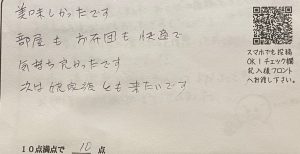 美味しかったです
部屋も お布団も 快適で
気持ち良かったです
次は 彼家族 とも 来たいです
10点満点で 10 点
スマホでも投稿
OK！チェック欄
記入後フロント
へお渡し下さい。